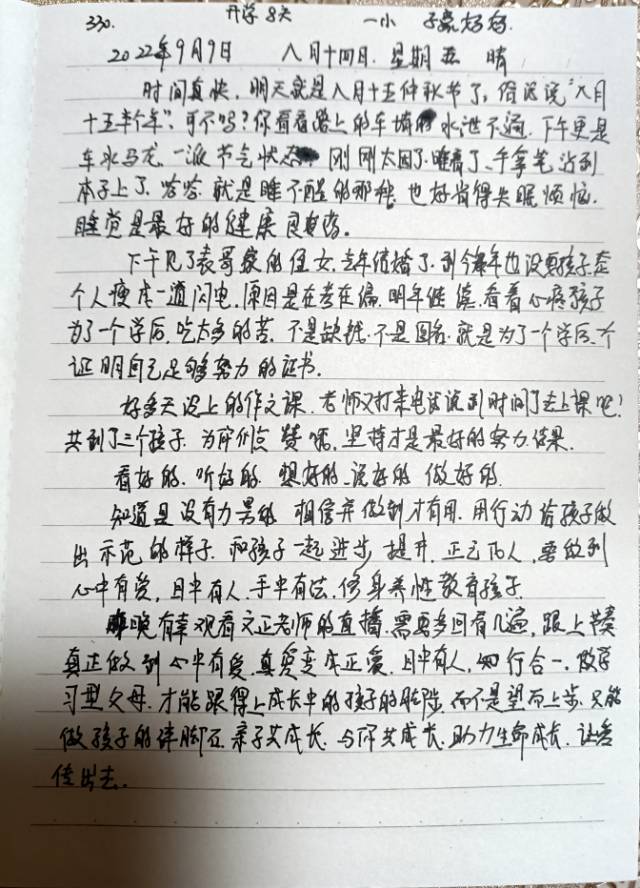 330. 开学8天 一小 子豪妈妈.
2022年9月9日 八月十四日. 星期五 晴
时间真快, 明天就是八月十五仲秋节了, 俗话说“八月
十五半个年”, 可不吗? 你看看路上的车堵的水泄不通, 下午更是
车水马龙, 一派节气状态 刚刚太困了, 睡着了, 手拿笔 到
本子上了, 哈哈, 就是睡不醒的那种, 也好省得失眠烦恼.
睡觉是最好的健康良药.
下午见了表哥家的侄女, 去年结婚了, 到今年也没要孩子, 整
个人瘦成一道闪电, 原因是在考在编, 明年继续, 看着心疼孩子
为了一个学历, 吃太多的苦. 不是缺钱, 不是图名, 就是为了一个学历, 一个
证明自己足够努力的证书.
好多天没上的作文课, 老师又打来电话说到时间了去上课吧!
共到了三个孩子, 为你们点赞哦, 坚持才是最好的努力结果.
看好的, 听好的, 想好的, 说好的, 做好的.
知道是没有力量的, 相信并做到才有用. 用行动给孩子做
出示范的样子, 和孩子一起进步, 提升. 正己化人, 要做到
心中有爱, 目中有人, 手中有法, 修身养性教育孩子.
昨晚有幸观看文正老师的直播, 需要多回看几遍, 跟上节奏
真正做到心中有爱, 真爱变成正爱, 目中有人, 知行合一, 做学
习型父母, 才能跟得上成长中的孩子的脚步, 而不是望而止步, 只能
做孩子的绊脚石, 亲子共成长, 与你共成长, 助力生命成长, 让爱
传出去.